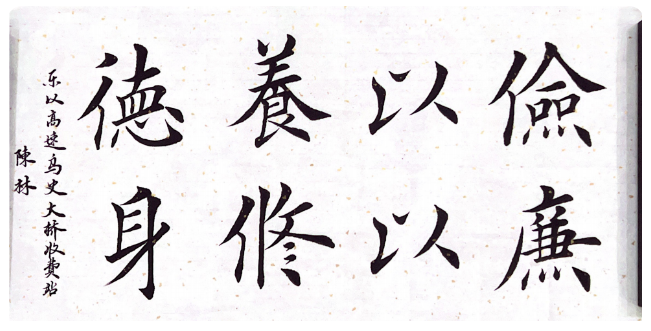 儉以養德
廉以修身
乐以高速乌史大桥收费站
陳林